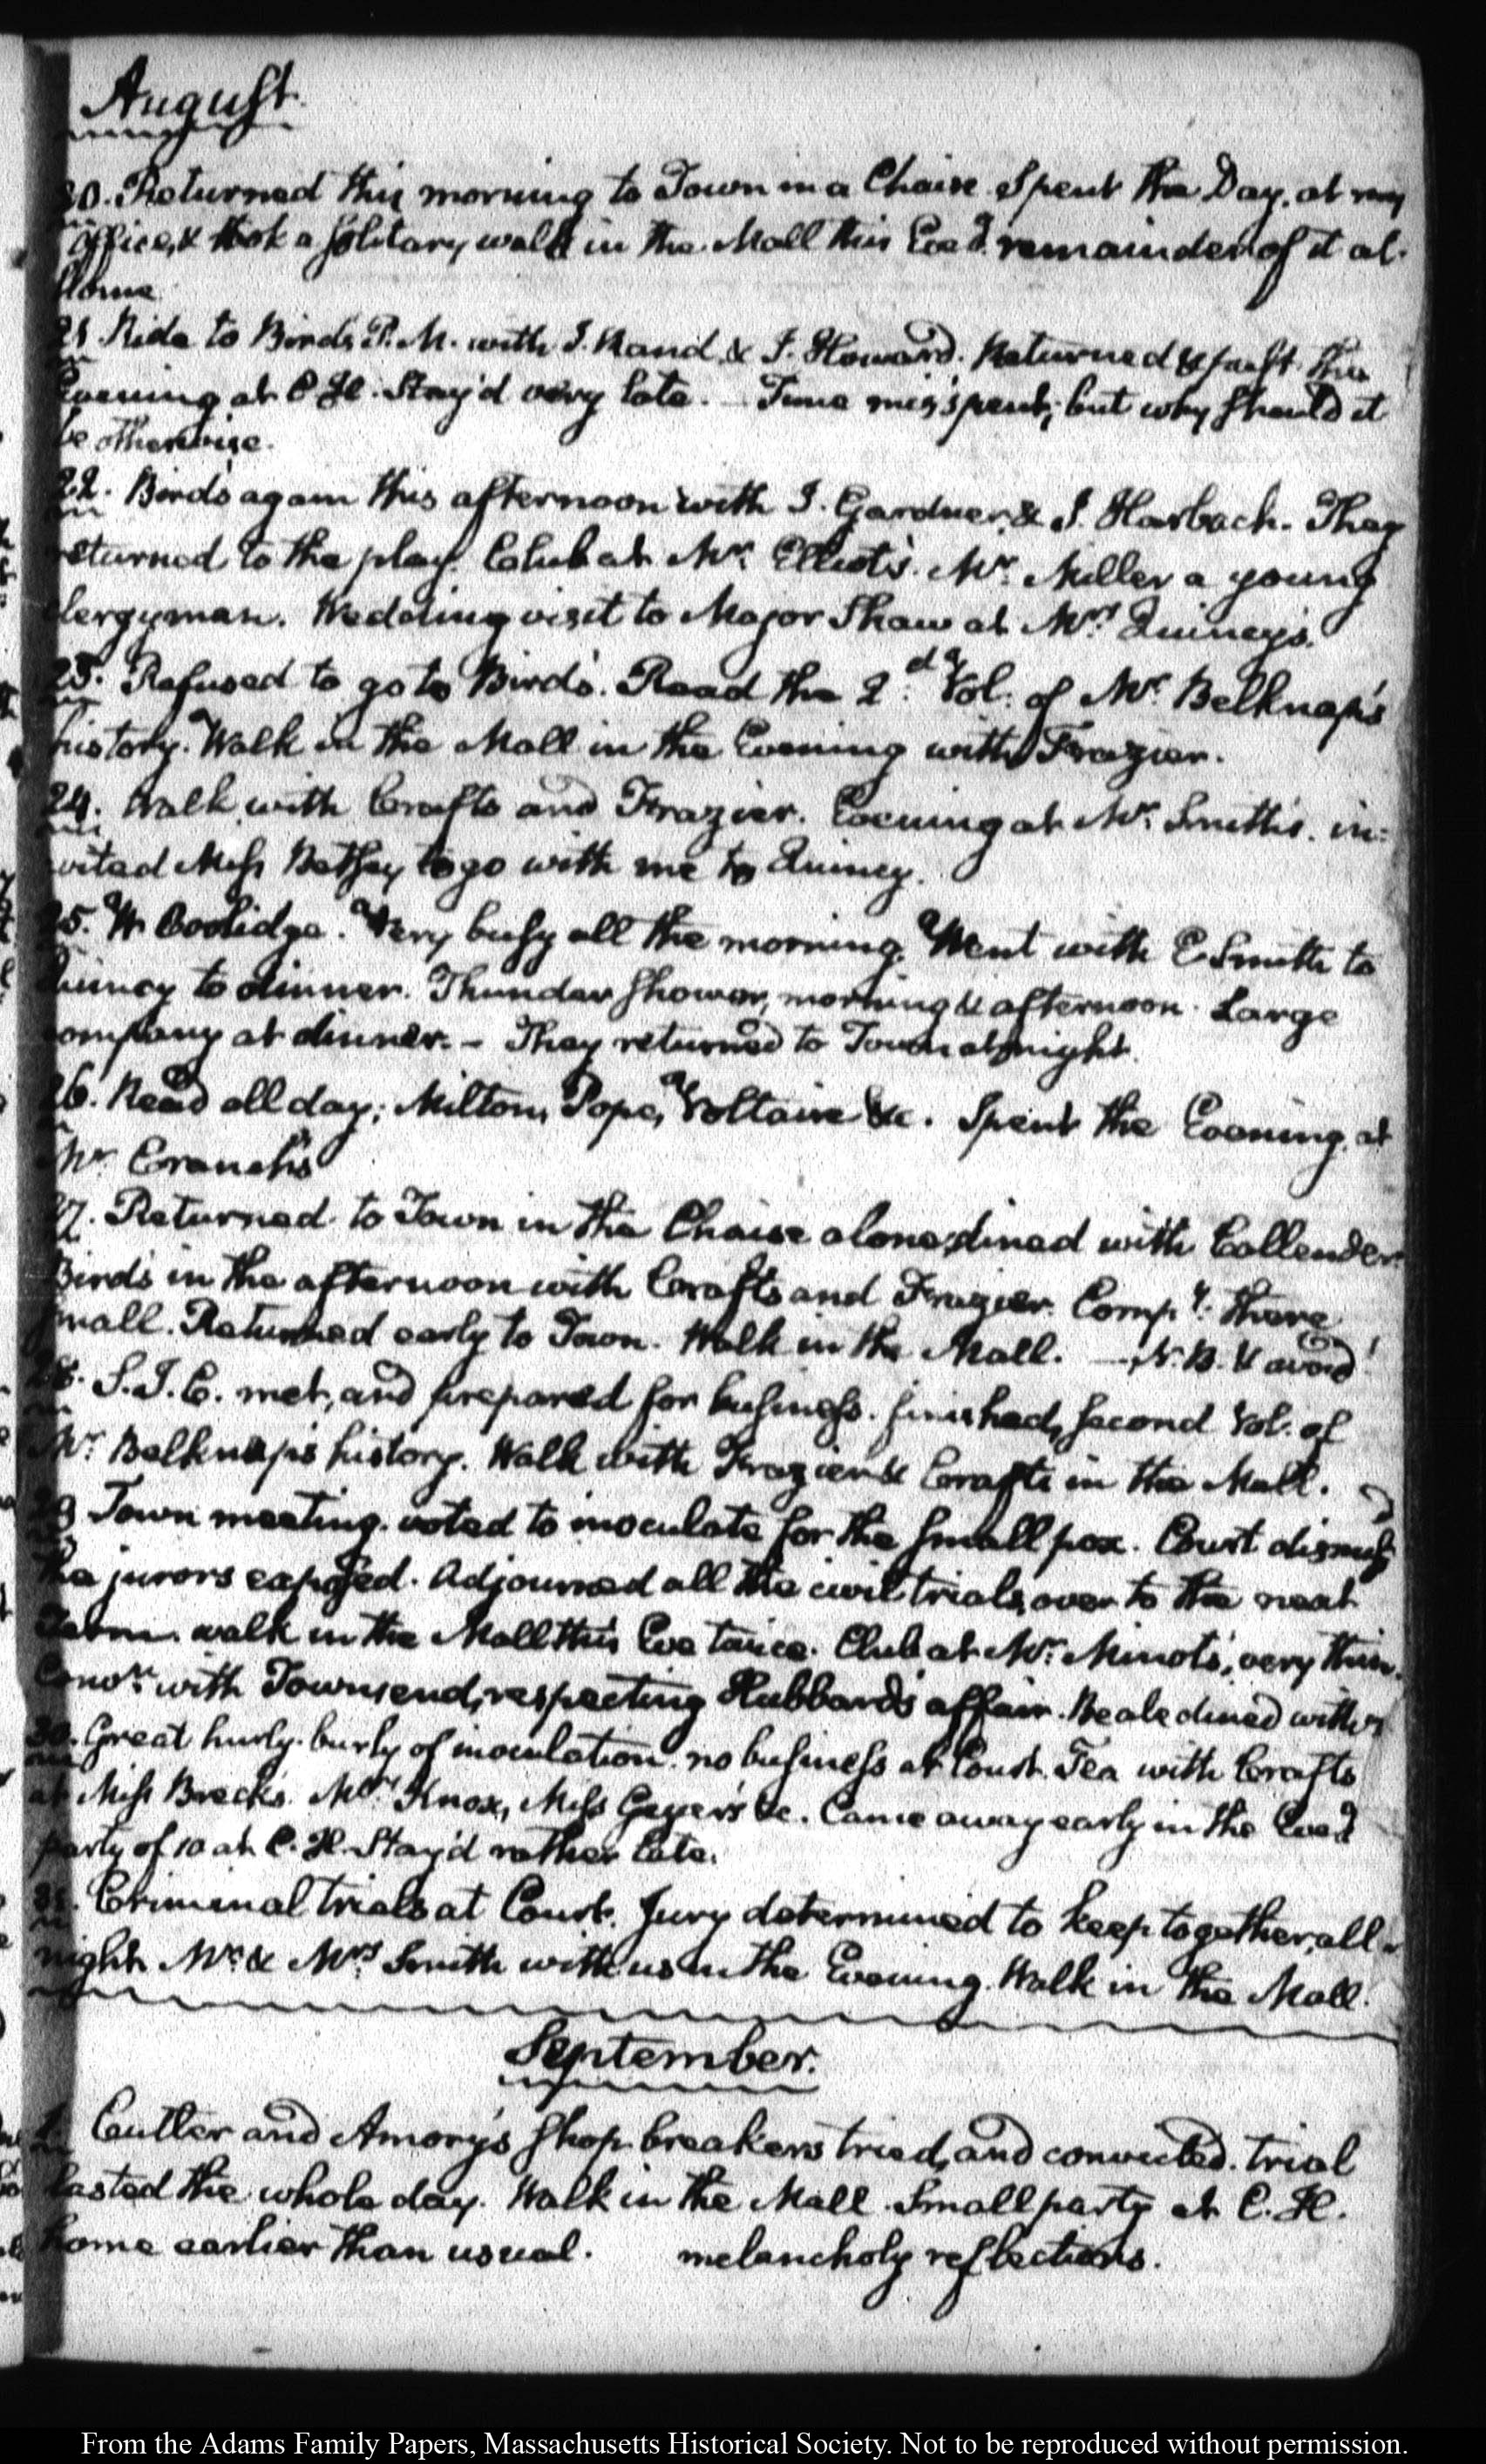 August
20. Returned this morning to Town in a Chaise. Spent the Day, at my
office, & took a solitary walk in the Mall this Eveg. remainder of it at
Home.
21 Ride to Birds P.M. with I. Rand & J. Howard. Returned & past the
Evening at C H. Stay'd very late. — Time misspent; but why should it
be otherwise.
22. Bird's again this afternoon with J. Gardner & J. Harbach. They
returned to the play. Club at Mr. Elliot's. Mr. Miller a young
clergyman. Wedding visit to Major Shaw at Mrs. Quincy's.
23. Refused to go to Bird's. Read the 2d. Vol: of Mr. Belknap's
history. Walk in the Mall in the Evening with Frazier.
24. Walk with Crafts and Frazier. Evening at Mr. Smith's. in=
vited Miss Betsey to go with me to Quincy.
25. W Coolidge. Very busy all the morning. Went with E Smith to
Quincy to dinner. Thunder shower, morning & afternoon. Large
company at dinner. — They returned to Town at night.
26. Read all day; Milton, Pope, Voltaire &c. Spent the Evening at
Mr Cranch's
27. Returned to Town in the Chaise alone; dined with Callender.
Birds in the afternoon with Crafts and Frazier. Compy. there
small. Returned early to Town. Walk in the Mall. — N.B. & avoid!
28. S.J.C. met, and prepared for business. finished, second Vol. of
Mr. Belknap's history. Walk with Frazier & Crafts in the Mall.
29 Town meeting. voted to inoculate for the small pox. Court dismiss'd
the jurors exposed. Adjourned all the civil trials, over to the next
Term. walk in the Mall this Eve twice. Club at Mr. Minot's, very thin.
Convn. with Townsend, respecting Hubbard's affair. Beale dined with
30. Great hurly-burly of inoculation. no business at Court. Tea with Crafts
at Miss Breck's. Mrs. Knox, Miss Geyer's &c. Came away early in the Eveg
party of 10 at C. H. Stay'd rather late.
31. Criminal trials at Court. Jury determined to keep together, all
night. Mr. & Mrs. Smith with us in the Evening. Walk in the Mall.
September.
1. Cutler and Amory's shop-breakers tried, and convicted. trial
lasted the whole day. Walk in the Mall. Small party at C. H.
home earlier than usual. melancholy reflections.
From the Adams Family Papers, Massachusetts Historical Society. Not to be reproduced without permission.